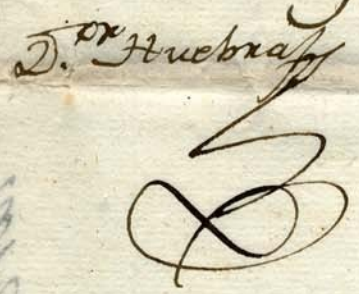 D.or Huebra